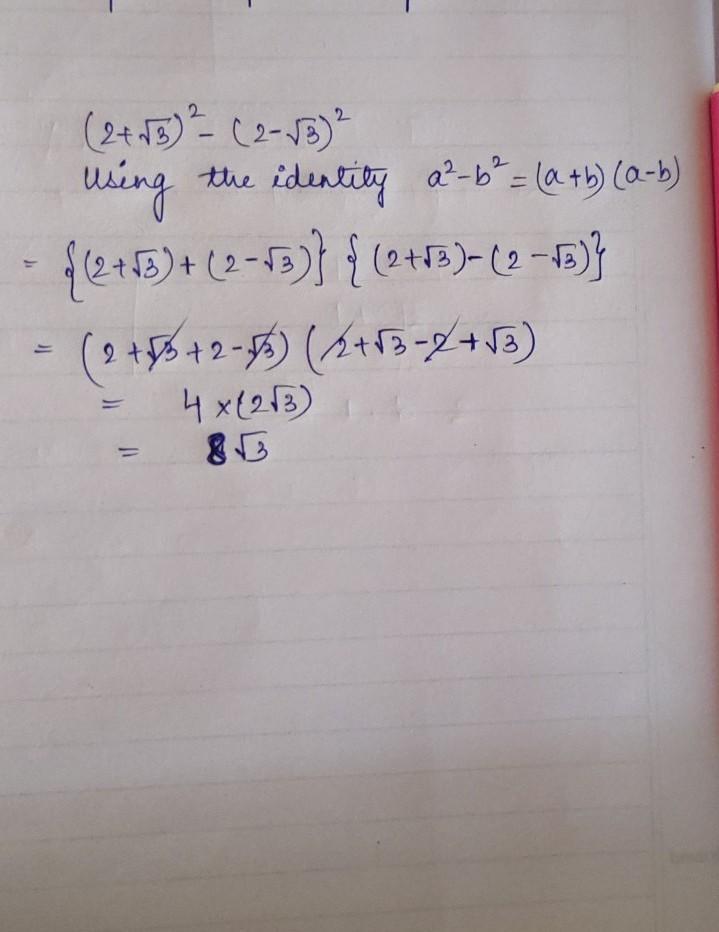 (2+√3)² - (2-√3)²
Using the identity a²-b² = (a+b) (a-b)
= {(2+√3)+(2-√3)} {(2+√3)-(2-√3)}
= (2+√3+2-√3) (2+√3-2+√3)
= 4 x(2√3)
= 8√3